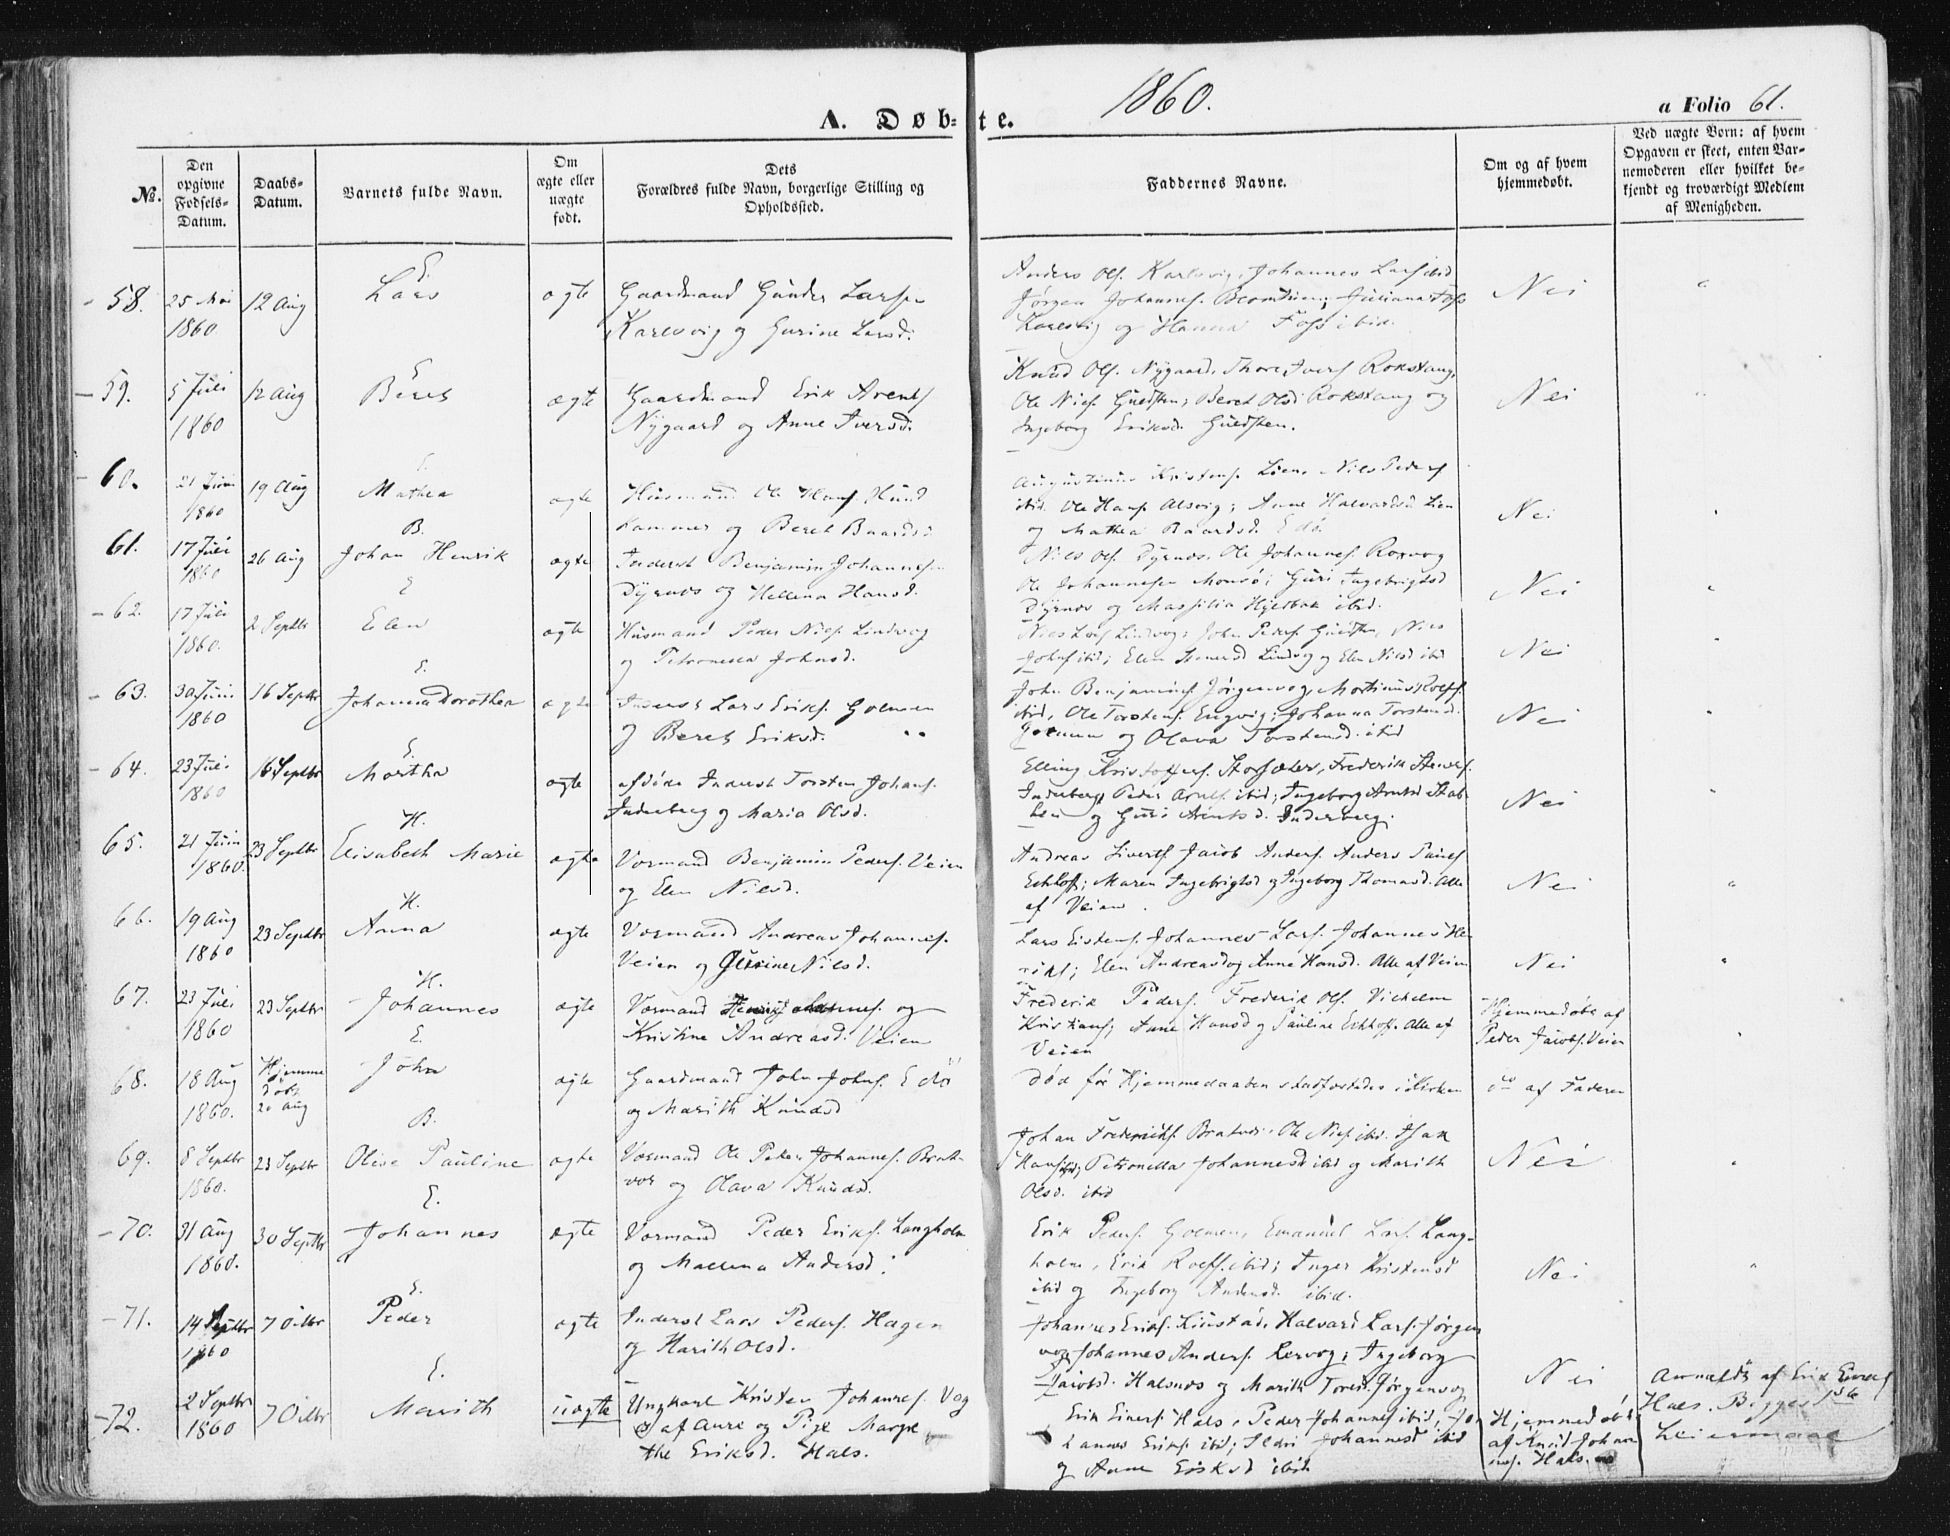 1860.
A. Døb-te.
a Folio 61.
№.
Den opgivne Fødsels-Datum.
Daabs-Datum.
Barnets fulde Navn.
Om ægte eller uægte født.
Dets Forældres fulde Navn, borgerlige Stilling og Opholdssted.
Faddernes Navne.
Om og af hvem hjemmedøbt.
Ved uægte Børn: af hvem Opgaven er skeet, enten Barnemoderen eller hvilket bekjendt og troværdigt Medlem af Menigheden.
E.
58. 25 Mai 1860 12 Aug Lars ægte Gaardmand Gunder Larsen
Karlsvig og Gurine Larsd.
Anders Ols. Karlsvig, Johannes Lars. ibid
Jørgen Johannes.
Karlsvig og Hanna Foss ibid.
Nei
E
59. 5 Juli 1860 12 Aug Beret ægte Gaardmand Erik Arents
Nygaard og Anne Iversd.
Knud Ols. Nygaard, Thore Ivers Rokstang,
Ole Niels. ; Beret Olsd Rokstang og
Ingeborg Eriksd.
Nei
E.
60. 21 Juni 1860 19 Aug Mathea ægte Husmand Ole Hans. Hund
hammer og Beret Baardsd.
Augustinus Kristens. Lien, Nils Peders
ibid. Ole Hans. Alsvig; Anne Halvardsd Lien
og Mathea Baardsd. Edø.
Nei
B.
61. 17 Juli 1860 26 Aug Johan Henrik ægte Inderst Benjamin Johannesen
Dyrnes og Hellena Hansd.
Nils Ols. Dyrnes. Ole Johannes. Roxvog
Ole Johannesen ; Guri Ingebrigtsd
Dyrnes og Massilia ibid.
Nei
E
62. 17 Juli 1860. 2 Septbr Elen ægte Husmand Peder Niels. Lindvog
og Petronella Johnsd.
Niels Lars Lindvog; John Peders. , Niels
Johns ibid; Elen Lindvog og Elen Nilsd ibid
Nei
E.
63. 30 Juni 1860 16 Septbr Johanna Dorothea ægte Inderst Lars Eriks. Golmen
og Beret Eriksd.
John Benjamins. Jørgenvog, Mortinus Rolfs.
ibid, Ole Torstens. Engvig; Johanna Torstensd.
Golmen og Olava Torstensd. ibid
Nei
E.
64. 23 Juli 1860 16 Septbr Martha ægte afdøde Inderst Torsten Johans.
Inderberg og Maria Olsd.
Elling Kristoffers. Storsæter, Frederik
Inderberg, Peder ibid; Ingeborg Arntsd
og Guri Arntsd. Inderberg.
Nei
H.
65. 21 Juni 1860. 23 Septbr Elisabeth Marie ægte Vormand Benjamin Peders. Veien
og Elen Nilsd.
Andreas Siverts Jacob Anders. Anders
; Maren Ingebrigtsd og Ingeborg Thomasd. Alle
af Veien.
Nei
H.
66. 19 Aug 1860 23 Septbr Anna ægte Vormand Andreas Johannes.
Veien og Gurine Nilsd.
Lars Eistens. Johannes Lars. Johannes He
; Elen Andreasd og Anne Hansd. Alle af Veien
Nei
H.
67. 23 Juli 1860 23 Septbr Johannes ægte Vormand og
Kristine Andreasd. Veien
Frederik Peders. Frederik Ols. Vilhelm
Kristians; Anne Hansd og Pauline Alle af
Veien
Hjemmedøbt af
Peder Jacobs. Veien
E.
68. 18 Aug 1860. Hjemmedøbt 20 Aug John ægte Gaardmand John Johns. Edø
og Marith Knudsd
Død før Hjemmedaaben i Kirken
do af Faderen
B.
69. 8 Septbr 1860. 23 Septbr Olise Pauline ægte Vormand Ole Peder Johannes. Brat
vær og Olava Knudsd.
Johan Frederiks. Bratvær. Ole Niels. ibid. Isak
Hans ibid; Petronella Johannesd ibid og Marith
Olsd. ibid
Nei
E.
70. 31 Aug 1860. 30 Septbr Johannes ægte Vormand Peder Eriks. Langholm
og Mallena Andersd.
Erik Peders. Golmen, Emanuel Lars. Lang-
holm, Erik Rolfs. ibid; Inger Kristensd
ibid og Ingeborg Andersd. ibid.
Nei
E.
71. 14 Septbr 1860 7 Octbr Peder ægte Inderst Lars Peders. Hagen
og Marith Olsd.
Johannes Eriks. , Halvard Lars. Jørgen
vog, Johannes Anders. ; Ingeborg
Jacobsd. Halsnes og Marith Jørgenvog
Nei
E.
72. 2 Septbr 1860 7 Octbr Marith uægte Ungkarl Kristen Johannes. Vog
af Aure og Pige Margre
the Eriksd. Hals.
Erik Einers. Hals, Peder Johannes ibid; Jo
hannes Eriks. ibid; Johannesd ibid
og Anne Eriksd ibid.
Hjemmedøbt
af Knud Johan
nes. Hals.
Anmeldt af Erik Einers
Hals. Begges 1ste
Leiermaal